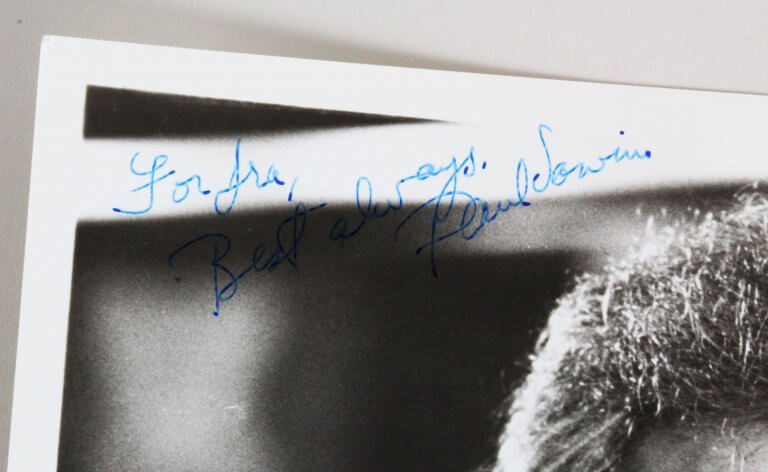 For Ira,
Best always.
Paul Sorvino